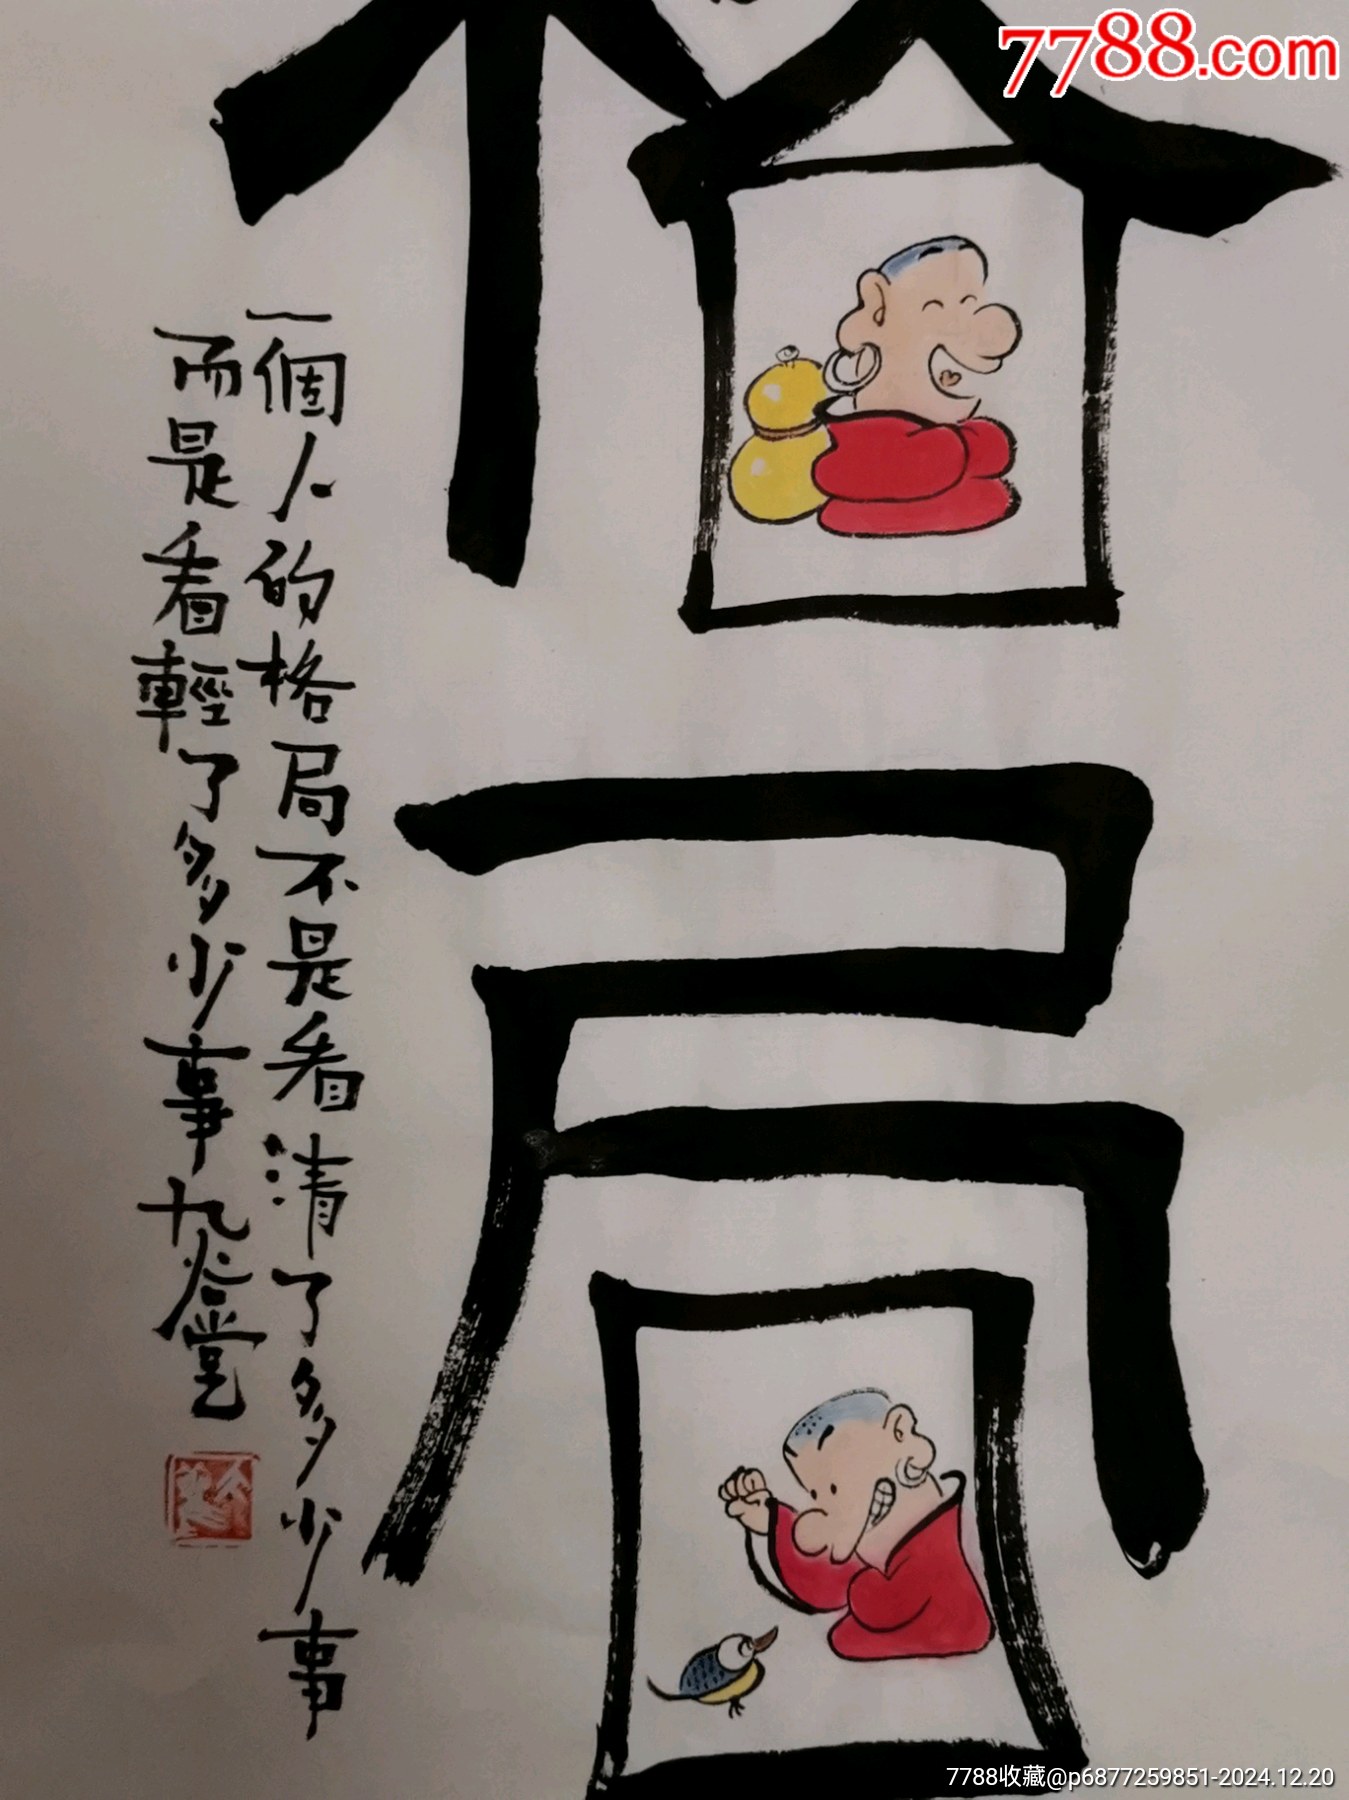 7788.com
格局
一個人的格局不是看清了多少事
而是看輕了多少事
7788收藏@p6877259851-2024.12.20